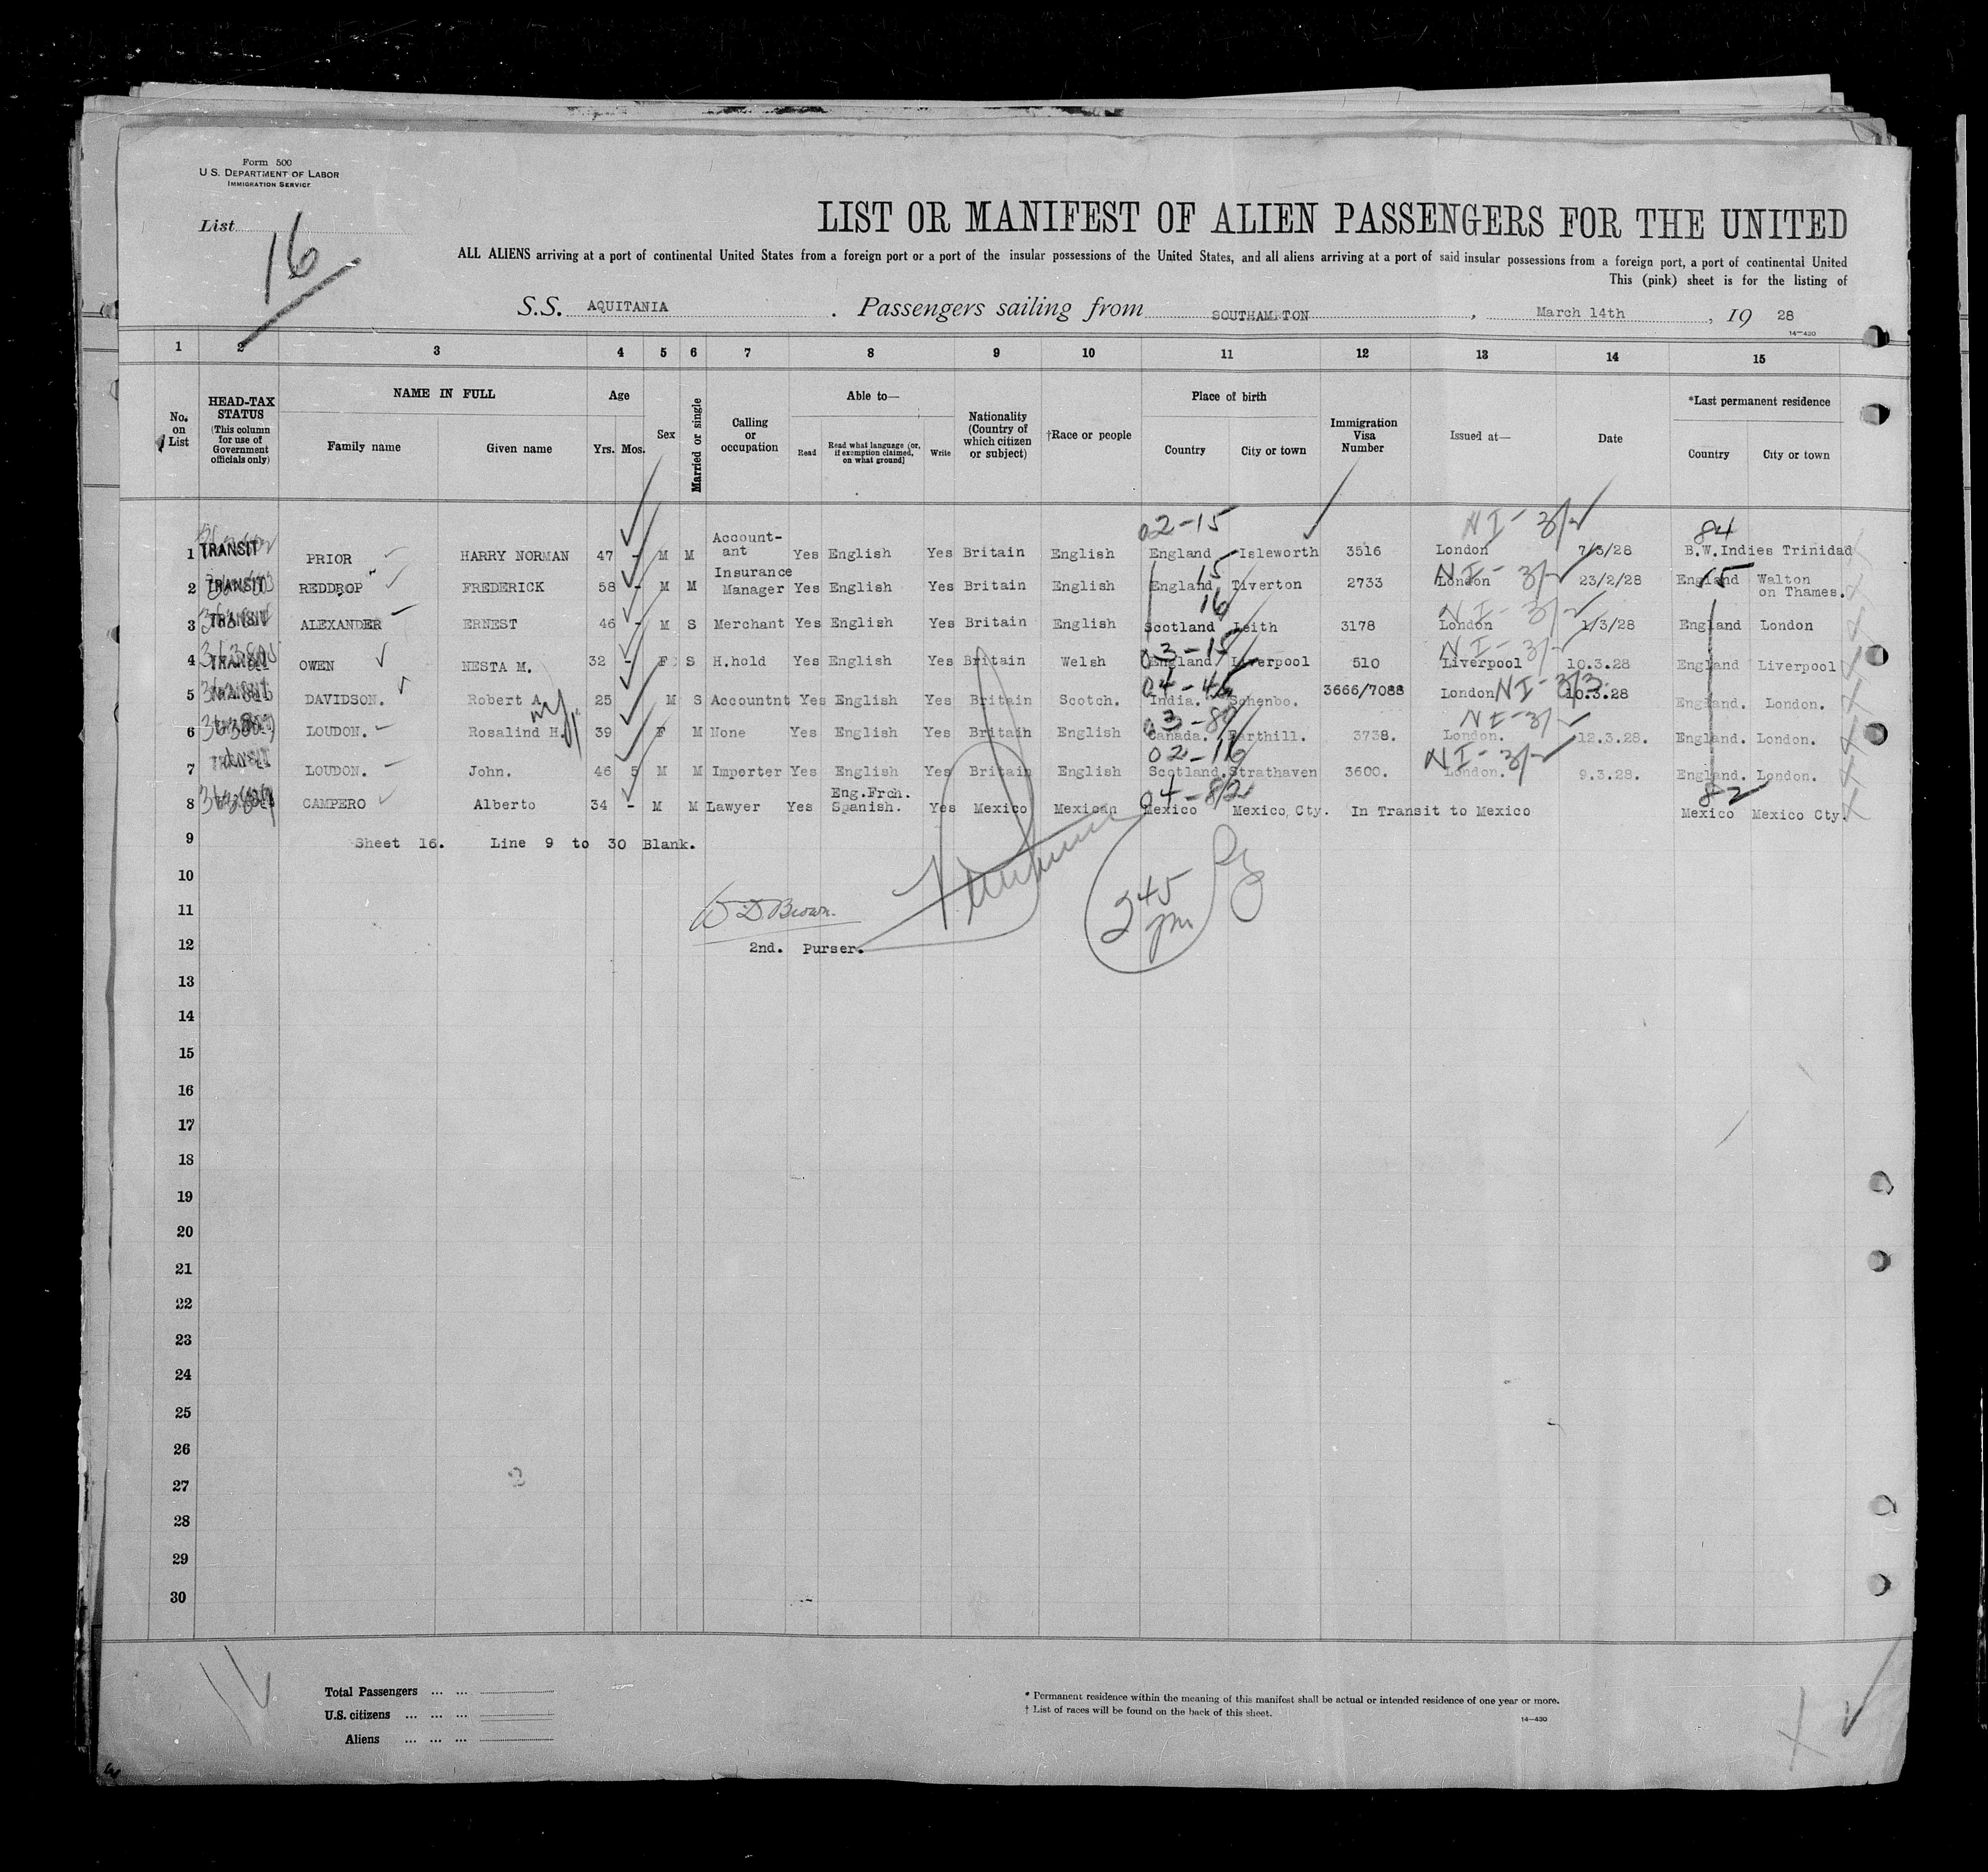 Form 500
U.S. DEPARTMENT OF LABOR
IMMIGRATION SERVICE
List 16
LIST OR MANIFEST OF ALIEN PASSENGERS FOR THE UNITED
ALL ALIENS arriving at a port of continental United States from a foreign port or a port of the insular possessions of the United States, and all aliens arriving at a port of said insular possessions from a foreign port, a port of continental United
This (pink) sheet is for the listing of
S.S. AQUITANIA . Passengers sailing from SOUTHAMPTON , March 14th , 19 28
14—430
1 2 3 4 5 6 7 8 9 10 11 12 13 14 15
No. on List
HEAD-TAX STATUS (This column for use of Government officials only)
NAME IN FULL
Family name Given name
Age
Yrs. Mos.
Sex
Married or single
Calling or occupation
Able to—
Read Read what language (or, if exemption claimed, on what ground) Write
Nationality (Country of which citizen or subject)
†Race or people
Place of birth
Country City or town
Immigration Visa Number
Issued at—
Date
*Last permanent residence
Country City or town
02-15 NI- 84
1 TRANSIT PRIOR HARRY NORMAN 47 - M M Account-ant Yes English Yes Britain English England Isleworth 3516 London 7/3/28 B.W.Indies Trinidad
15 NI- 15
2 TRANSIT REDDROP FREDERICK 58 - M M Insurance Manager Yes English Yes Britain English England Tiverton 2733 London 23/2/28 England Walton on Thames.
16 NI-
3 TRANSIT ALEXANDER ERNEST 46 - M S Merchant Yes English Yes Britain English Scotland Leith 3178 London 1/3/28 England London
03-15 NI-
4 TRANSIT OWEN NESTA M. 32 - F S H.hold Yes English Yes Britain Welsh England Liverpool 510 Liverpool 10.3.28 England Liverpool
NI-
5 TRANSIT DAVIDSON. Robert A. 25 M S Accountnt Yes English Yes Britain Scotch. India. Schenbo. 3666/7088 London 10.3.28 England. London.
NI-
6 LOUDON. Rosalind H. 39 F M None Yes English Yes Britain English Canada. 3738. London. 12.3.28. England. London.
02-16 NI-
7 TRANSIT LOUDON. John. 46 5 M M Importer Yes English Yes Britain English Scotland. Strathaven 3600. London. 9.3.28. England. London.
04-82 82
8 CAMPERO Alberto 34 - M M Lawyer Yes Eng.Frch. Spanish. Yes Mexico Mexican Mexico Mexico Cty. In Transit to Mexico Mexico Mexico Cty.
9 Sheet 16. Line 9 to 30 Blank.
10
11 W D. Brown.
245 pm
12 2nd. Purser.
13
14
15
16
17
18
19
20
21
22
23
24
25
26
27
28
29
30
Total Passengers ... ...
U.S. citizens ... ... ...
Aliens ... ... ...
* Permanent residence within the meaning of this manifest shall be actual or intended residence of one year or more.
† List of races will be found on the back of this sheet.
14—430